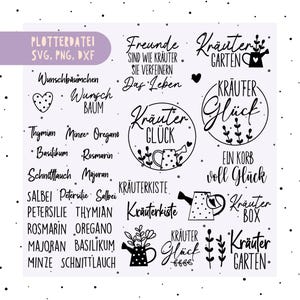 PLOTTERDATEI
SVG, PNG, DXF
Wunschbäumchen
Wunsch
BAUM
Thymian Minze Oregano
Basilikum Rosmarin
Schnittlauch Majoran
SALBEI Petersilie Salbei
PETERSILIE THYMIAN
ROSMARIN OREGANO
MAJORAN BASILIKUM
MINZE SCHNITTLAUCH
Freunde
SIND WIE KRÄUTER
SIE VERFEINERN
Das Leben
Kräuter
GARTEN
Kräuter
GLÜCK
KRÄUTER
Glück
EIN KORB
voll Glück
KRÄUTERKISTE
Kräuterkiste
Kräuter
BOX
KRÄUTER
Glück
Kräuter
GARTEN